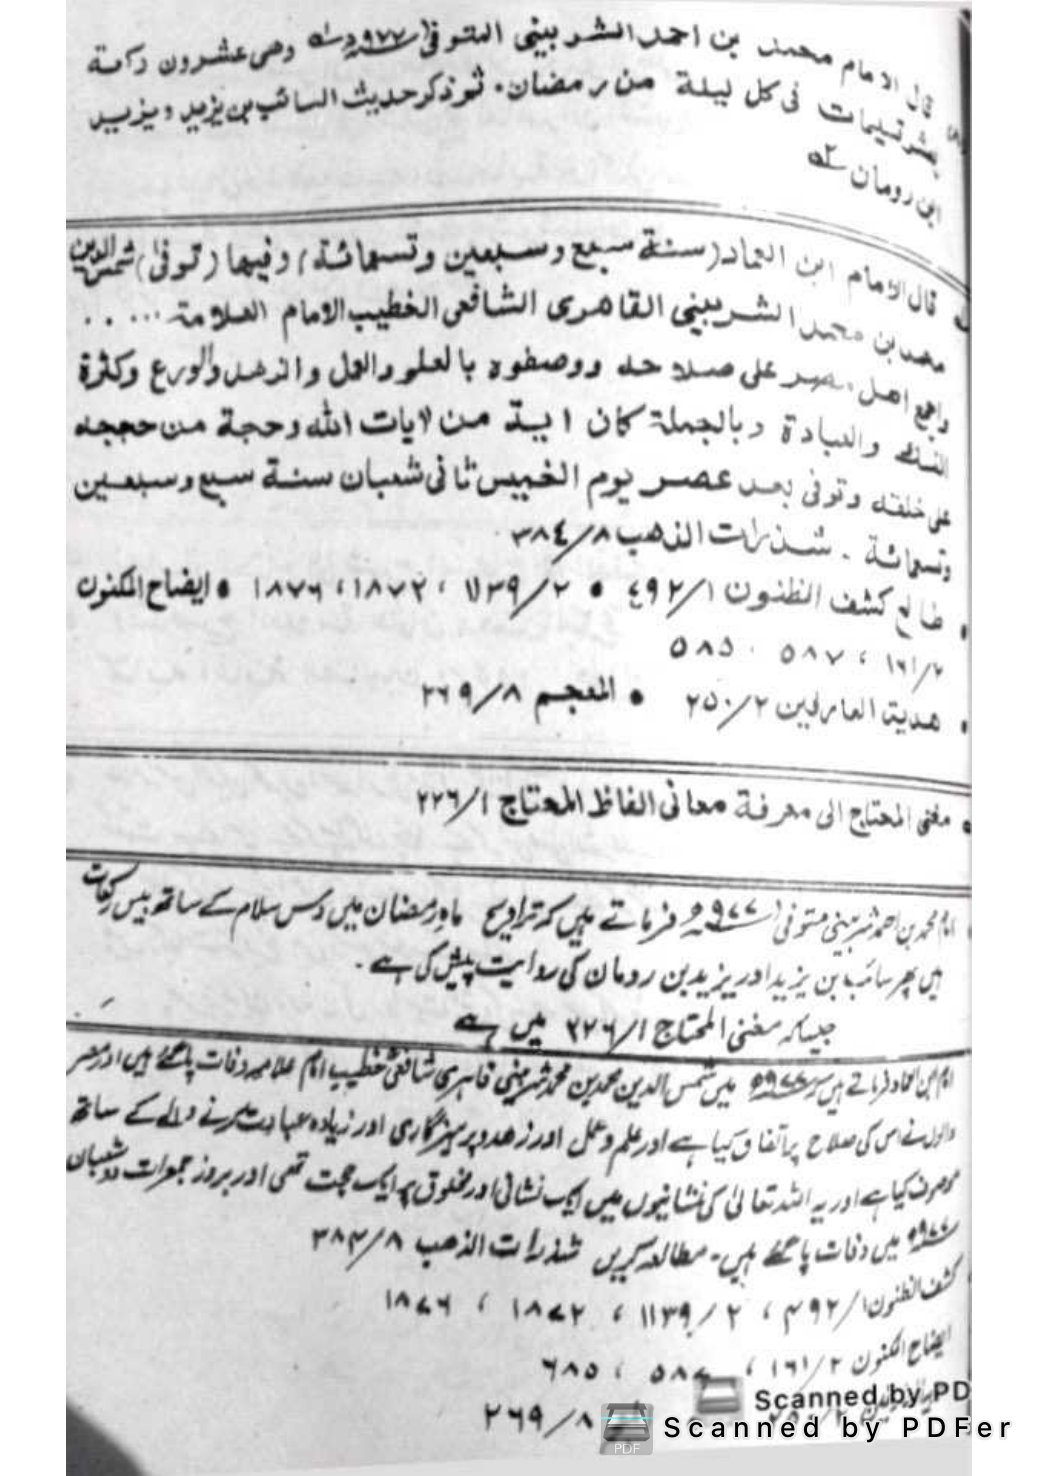 قال الامام محمد بن احمد الشربينى المتوفى سنة ٩٧٧ھ وهى عشرون ركعة
بعشر تسليمات فى كل ليلة من رمضان. ثم ذكر حديث السائب بن يزيد ويزيد
ابن رومان
قال الامام ابن العماد (سنة سبع وسبعين وتسعمائة) وفيها (توفى) شمس الدين
محمد بن محمد الشربينى القاهرى الشافعى الخطيب الامام العلامة .....
واجمع اهل مصر على صلاحه ووصفوه بالعلم والعمل والزهد والورع وكثرة
النسك والعبادة وبالجملة كان اية من ايات الله وحجة من حججه
على خلقه وتوفى بعد عصر يوم الخميس ثانى شعبان سنة سبع وسبعين
وتسعمائة ـ شذرات الذهب ٣٨٤/٨ .
طالع كشف الظنون ٤٩٢/١ • ١١٣٩/٢ ، ١٨٧٢ ، ١٨٧٦ • ايضاح المكنون
١٦١/٢ ، ٥٨٧ . ٥٨٥
• هدية العارفين ٢٥٠/٢ • المعجم ٢٦٩/٨
• مغنى المحتاج الى معرفة معانى الفاظ المحتاج ٢٢٦/١
امام محمد بن احمد شربینی متوفی ۹۷۷ھ فرماتے ہیں کہ تراویح ماہ رمضان میں دس سلام کے ساتھ بیس رکعات
ہیں پھر سائب بن یزید اور یزید بن رومان کی روایت پیش کی ہے ۔
جیسا کہ مغنی المحتاج ۲۲۶/۱ میں ہے
امام ابن العماد فرماتے ہیں ۹۷۷ھ میں شمس الدین محمد بن محمد شربینی قاہری شافعی خطیب امام علامہ وفات پاگئے ہیں اور مصر
والوں نے اس کی صلاح پر اتفاق کیا ہے اور علم و عمل اور زھد و پرہیزگاری اور زیادہ عبادت کرنے والے کے ساتھ
موصوف کیا ہے اور یہ اللہ تعالیٰ کی نشانیوں میں ایک نشانی اور مخلوق پر ایک حجت تھی اور بروز جمعرات دو شعبان
۹۷۷ھ میں وفات پاگئے ہیں۔ مطالعہ کریں شذرات الذھب ۳۸۴/۸
کشف الظنون ۴۹۲/۱ ، ۱۱۳۹/۲ ، ۱۸۷۲ ، ۱۸۷۶
ایضاح المکنون ۱۶۱/۲ ، ۵۸۷ ، ۶۸۵
۲۶۹/۸
Scanned by PD
Scanned by PDFer
PDF